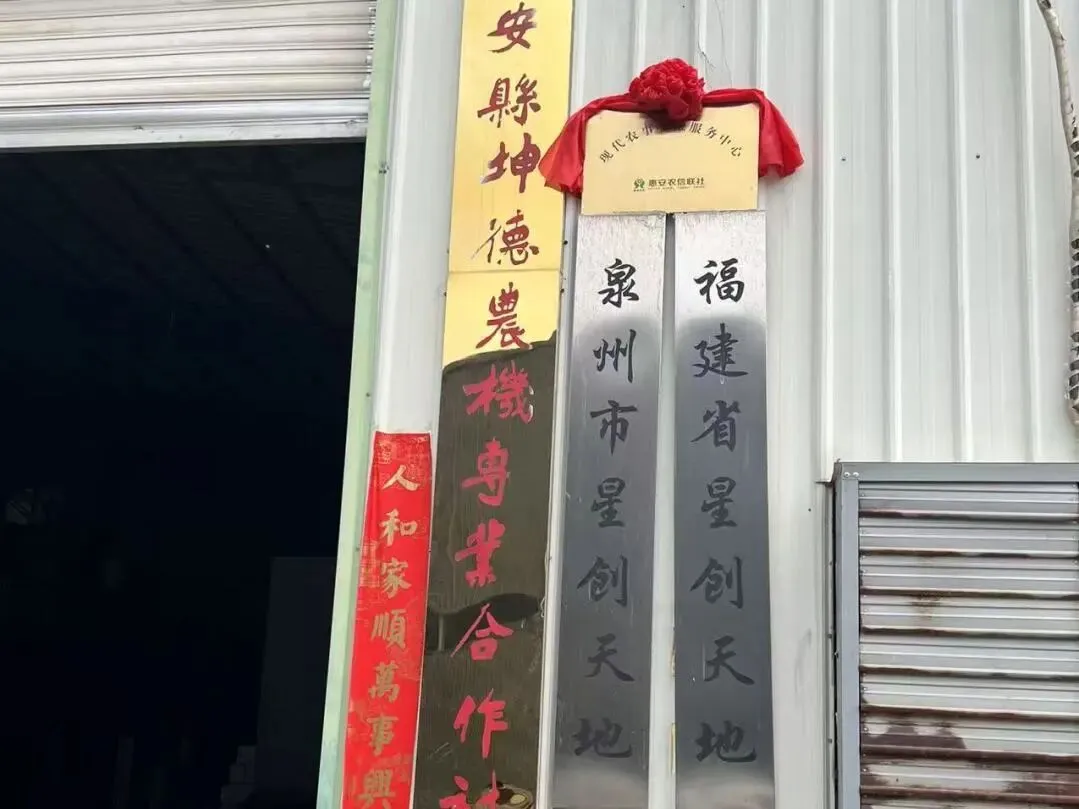 现代农事 服务中心
惠安农信联社
福建省星创天地
泉州市星创天地
安縣坤德農機專業合作社
人和家順萬事興